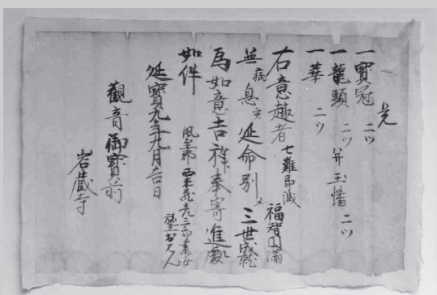 覚
一寶冠 二ツ
一龍頭 二ツ 并玉幡 二ツ
一華 二ツ
右意趣者七難即滅 福智円満
無病息災延命別メ 三世成就
為如意吉祥奉寄進處
如件
延寶九年九月吉日
觀音御寶前
岩蔵寺